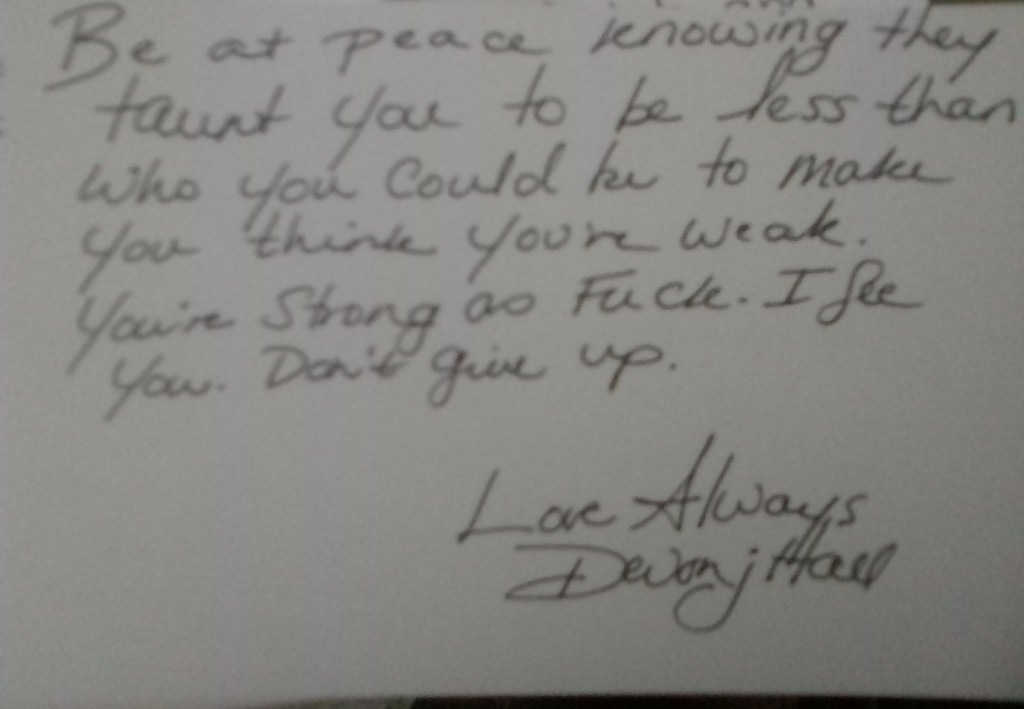 Be at peace knowing they
taunt you to be less than
who you could be to make
you think you're weak.
You're Strong as Fuck. I See
You. Don't give up.
Love Always
Devon J Hall